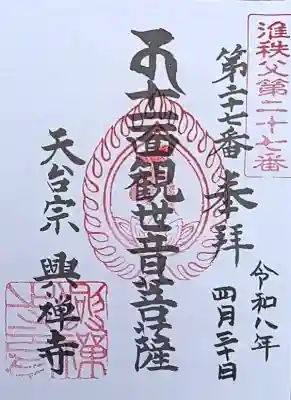 准秩父第二十七番
第二十七番 奉拝
令和八年
四月三十日
十一面観世音菩薩
天台宗 興禅寺